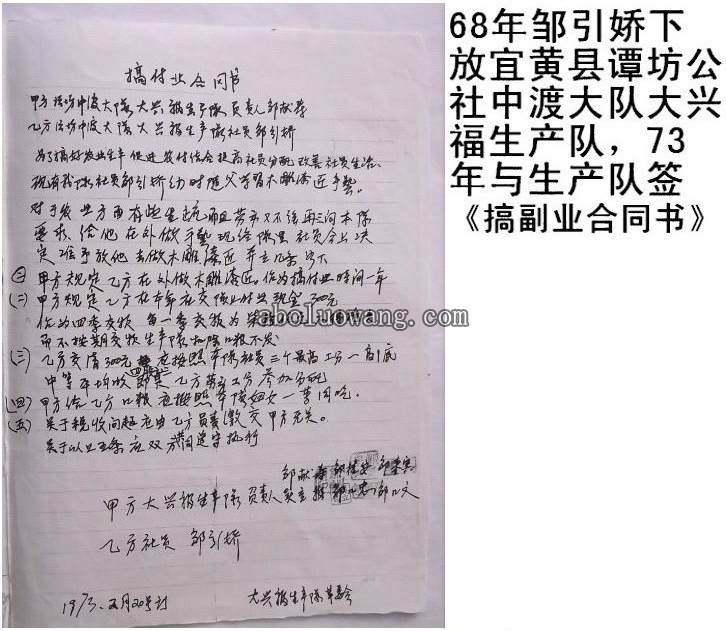 搞付业合同书
甲方 谭坊中渡大队大兴福生产队负责人邹献荐
乙方谭坊中渡大队大兴福生产队社员邹引娇
为了搞好农业生产促进农付结合提高社员分配改善社员生活.
现有我队社员邹引娇幼时随父学习木雕漆匠手艺.
对于农业方面有些生疏而且劳力又不强再三向本队
要求给他在外做手艺现经队里社员会上决
定准予放他去做木雕漆匠并立几条如下
(一) 甲方规定乙方在外做木雕漆匠.作为搞付业时间一年
(二) 甲方规定乙方在本年应交队付业现金300元
作为四季交款 每一季交款为
而不按期交款生产队扣除口粮不发
(三) 乙方交清300元应按照本队社员三个最高工分一高一底
中等平均收 乙方劳动工分参加分配
(四) 甲方给乙方口粮应按照本队妇女一等同吃.
(五) 关于税收问题应由乙方负责缴交甲方无关.
关于以上五条应双方共同遵守执行
甲方大兴福生产队负责人
乙方社员 邹引娇
1973.五月20号订 大兴福生产队革委会
www.aboluowang.com
68年邹引娇下
放宜黄县谭坊公
社中渡大队大兴
福生产队，73
年与生产队签
《搞副业合同书》